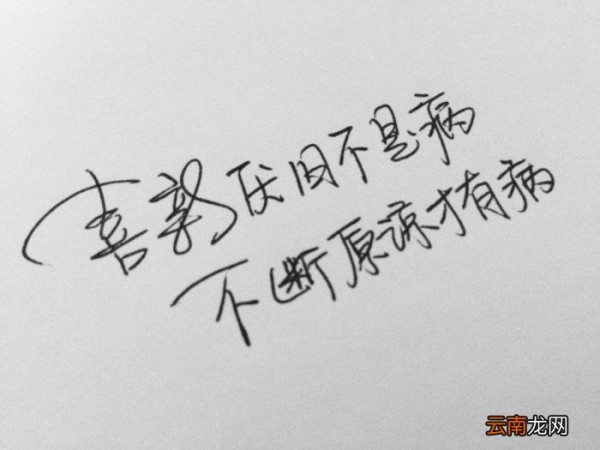 喜新厌旧不是病
不断原谅才有病
云南龙网